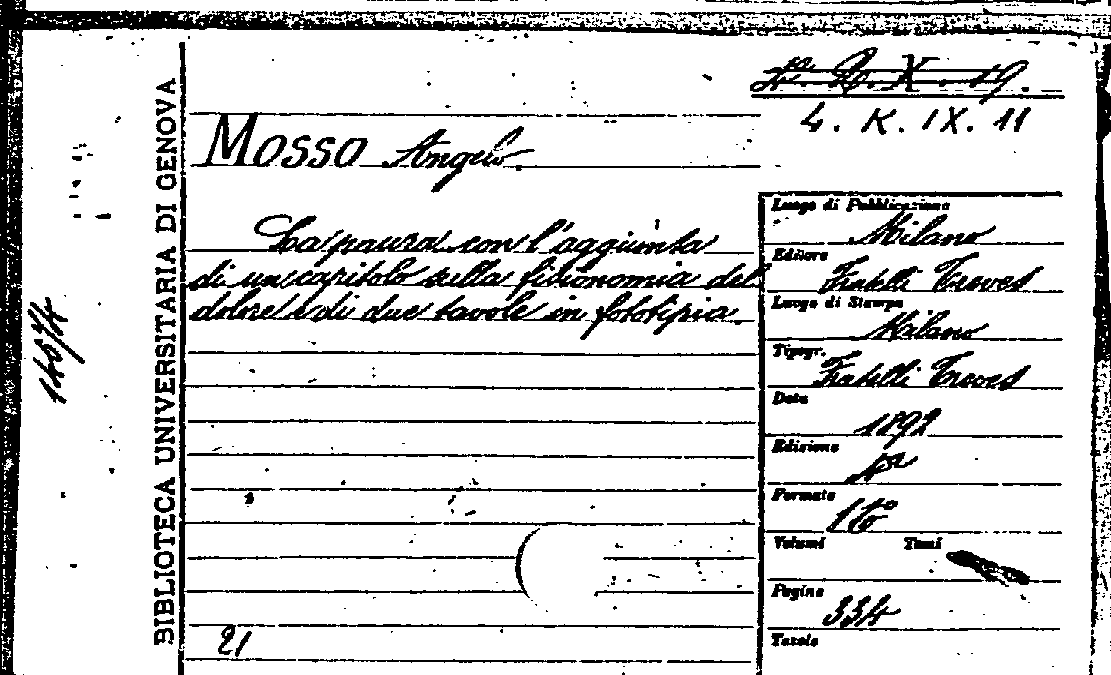 BIBLIOTECA UNIVERSITARIA DI GENOVA
4. K. IX. 11
MOSSO Angelo.
La paura con l'aggiunta
di un capitolo sulla fisionomia del
dolore e di due tavole in fototipia.
Luogo di Pubblicazione
Milano
Editore
Fratelli Treves
Luogo di Stampa
Milano
Tipogr.
Fratelli Treves
Data
1892
Edizione
Formato
16°
Volumi Tomi
Pagine
334
Tavole
21